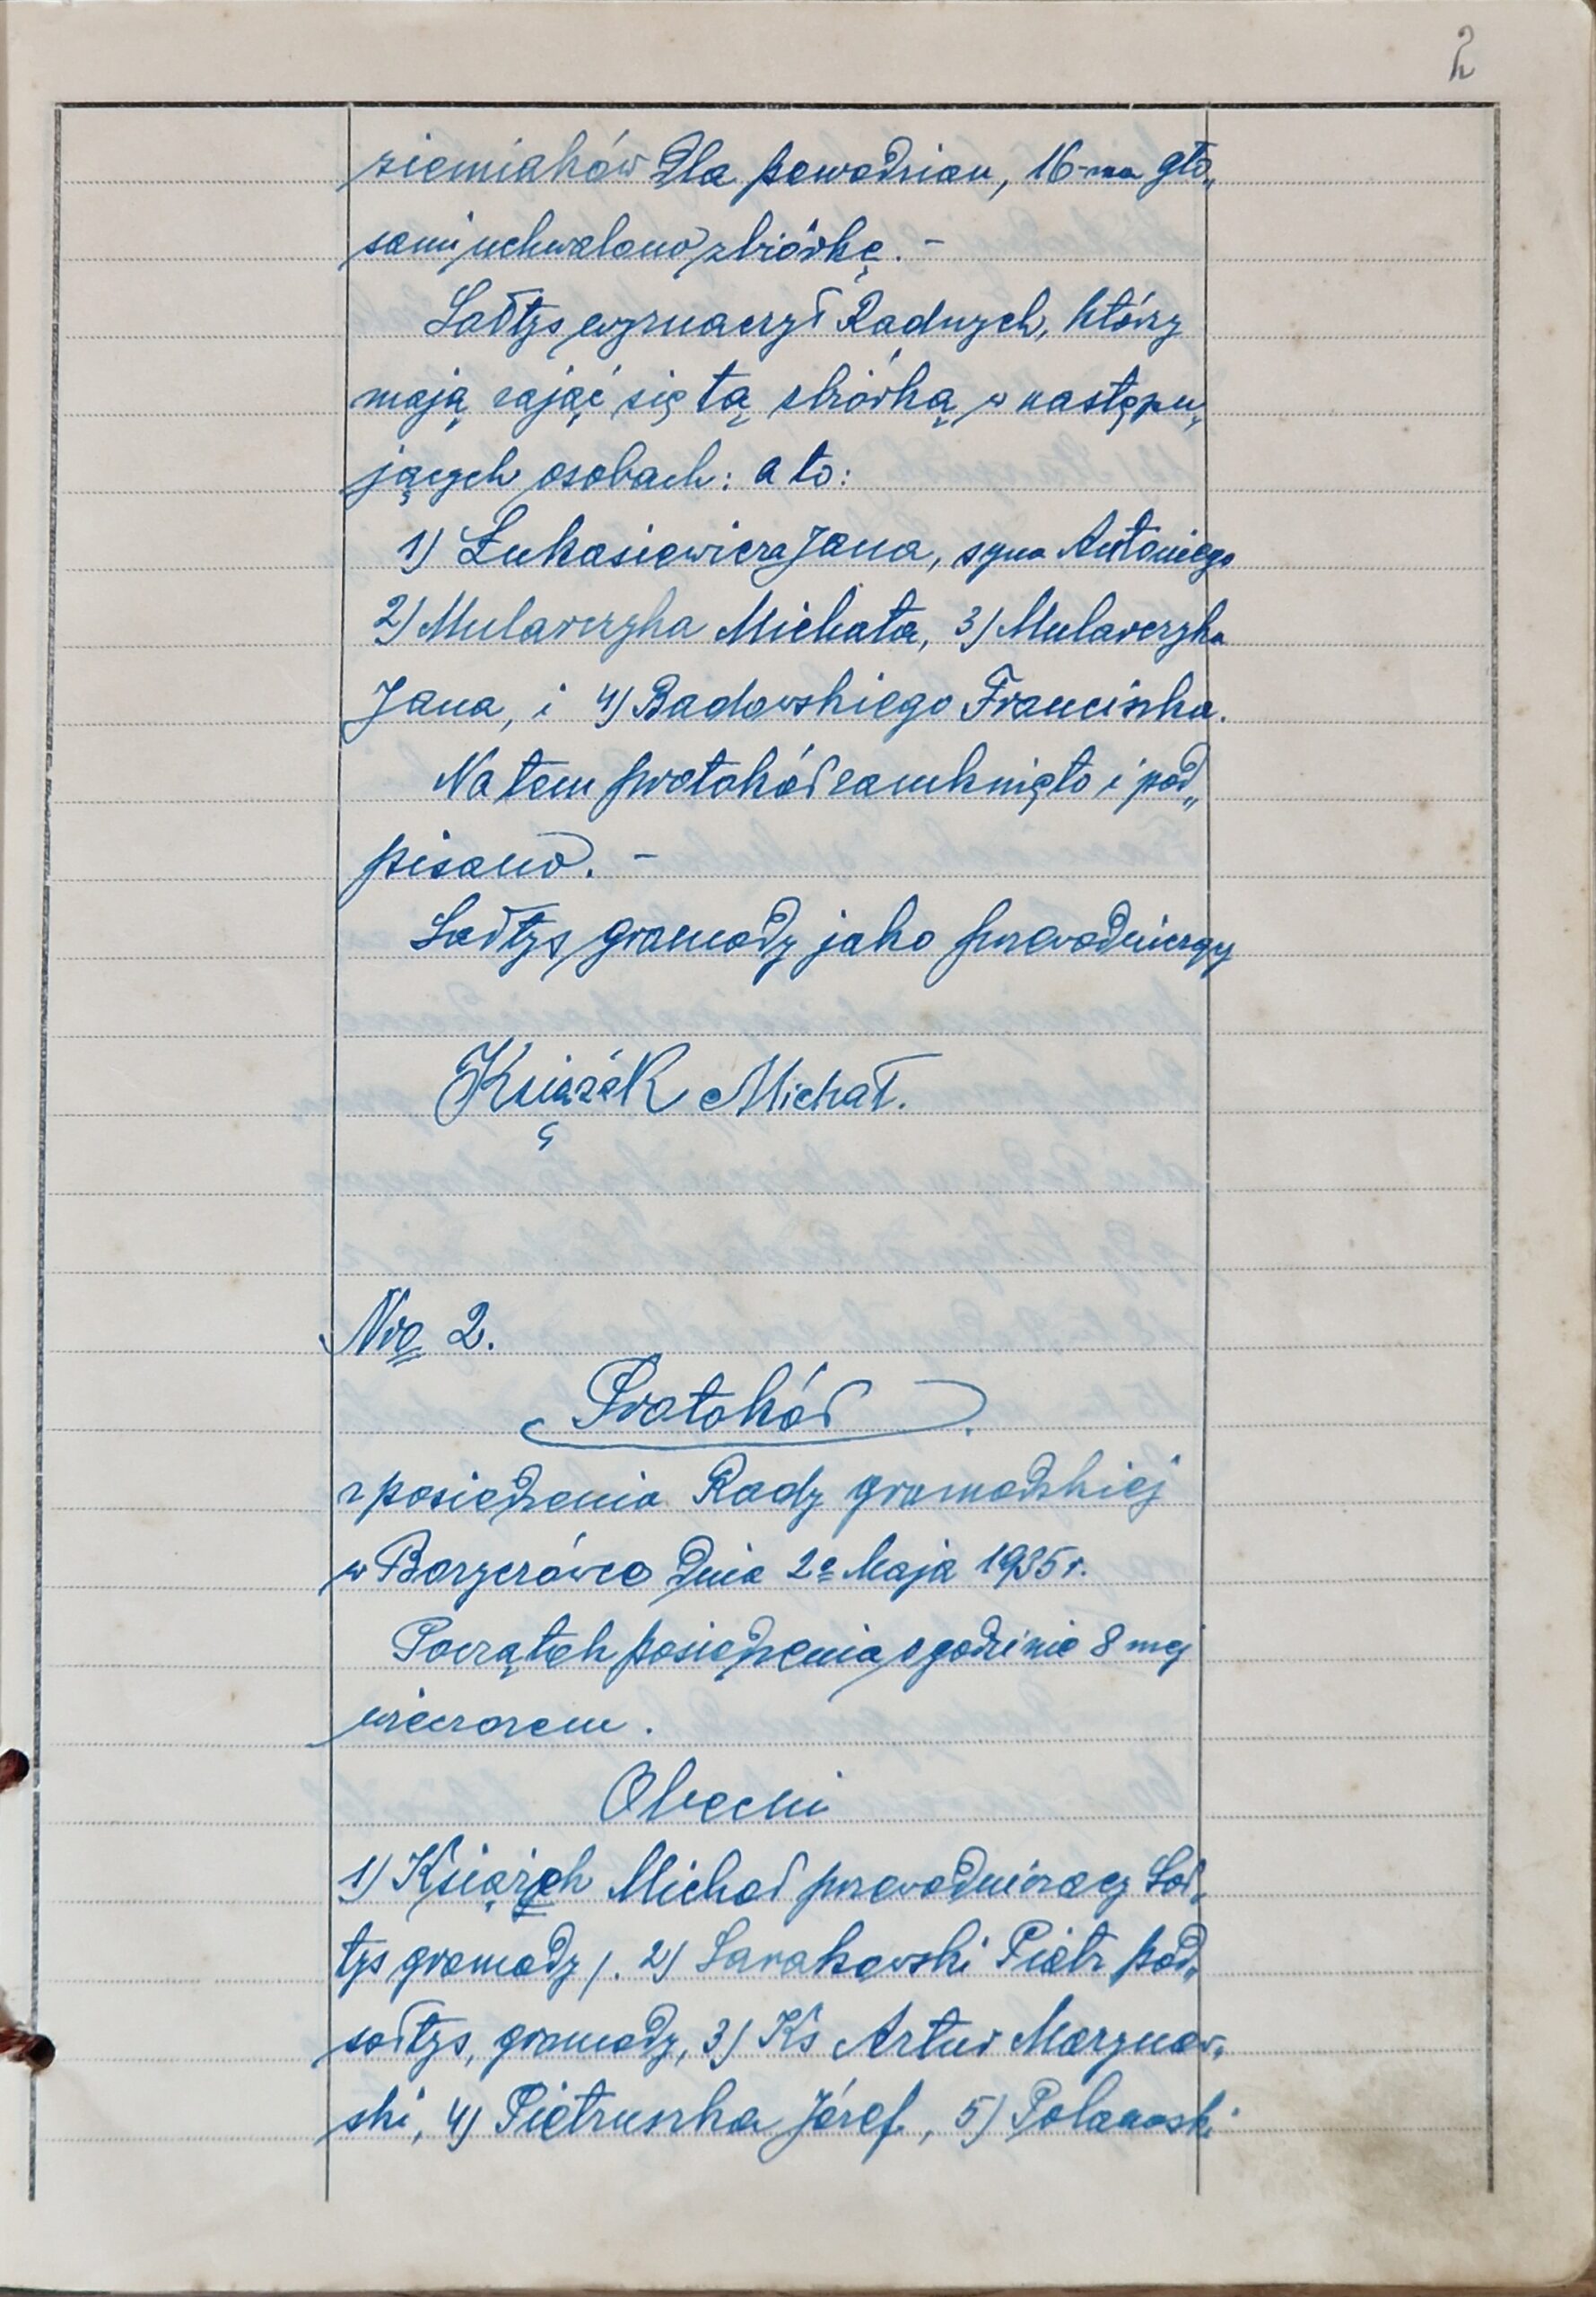 2
ziemiaków dla powodzian, 16-ma gło„
sami uchwalono zbiórkę. –
Sołtys wyznaczył Radnych, którzy
mają zająć się tą zbiórką w następu„
jących osobach: a to:
1) Łukasiewicza Jana, syna Antoniego
2) Mularczyka Michała, 3) Mularczyka
Jana, i 4) Badowskiego Franciszka.
Na tem protokół zamknięto i pod„
pisano. –
Sołtys gromady jako przewodniczący
Książek Michał.
Nro 2.
Protokół.
z posiedzenia Rady gromadzkiej
w Dnia 2º Maja 1935 r.
Początek posiedzenia o godzinie 8 mej
wieczorem.
Obecni
1) Książek Michał przewodniczący Soł„
tys gromady /. 2) Sarakowski Piotr pod„
sołtys, gromady, 3) Ks Artur
ski, 4) Pietruszka Józef, 5)